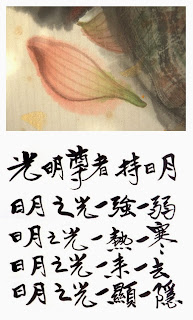 光明尊者持日月
日月之光一強一弱
日月之光一熱一寒
日月之光一來一去
日月之光一顯一隱